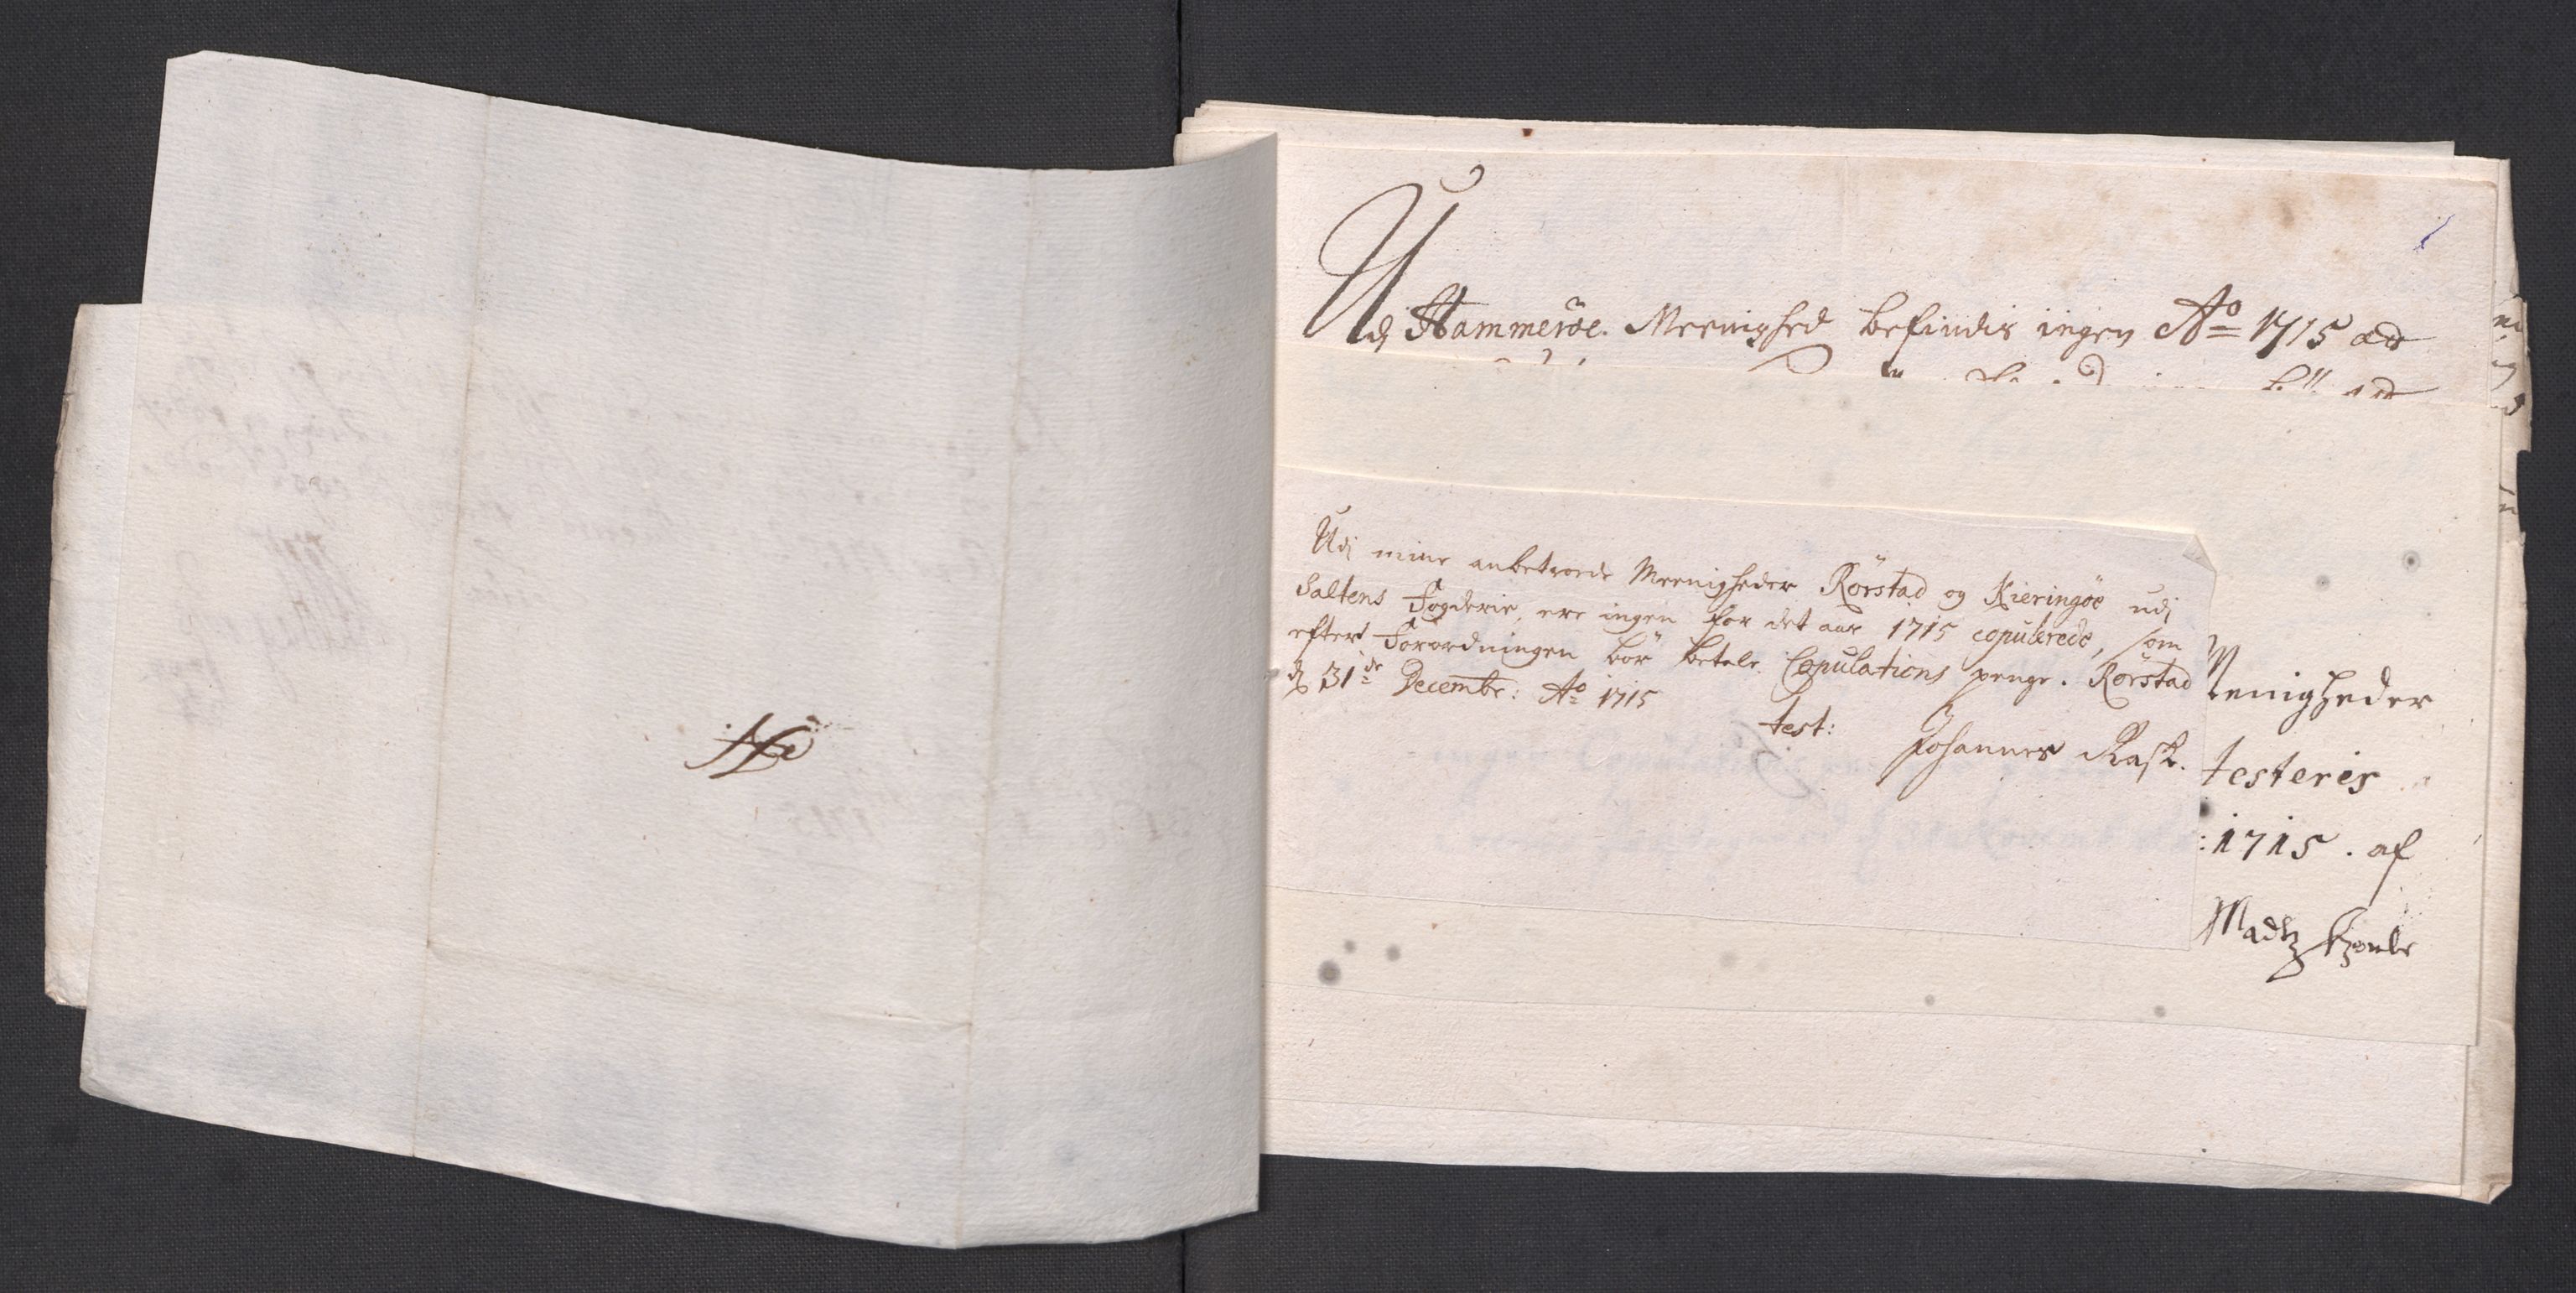 Udj Hammerøe Meenighed befindis ingen Aº 1715 at
Udj mine anbetroede Meenigheder Rörstad og Kieringöe udj
Saltens Fogderie, ere ingen for det aar 1715 copulerede, som
efter Forordningen bör betale Copulations penge. Rörstad
dj 31de Decembr: Aº 1715
test:
Johannes Rask.
Menigheder
testeris
:1715. af
Madtz